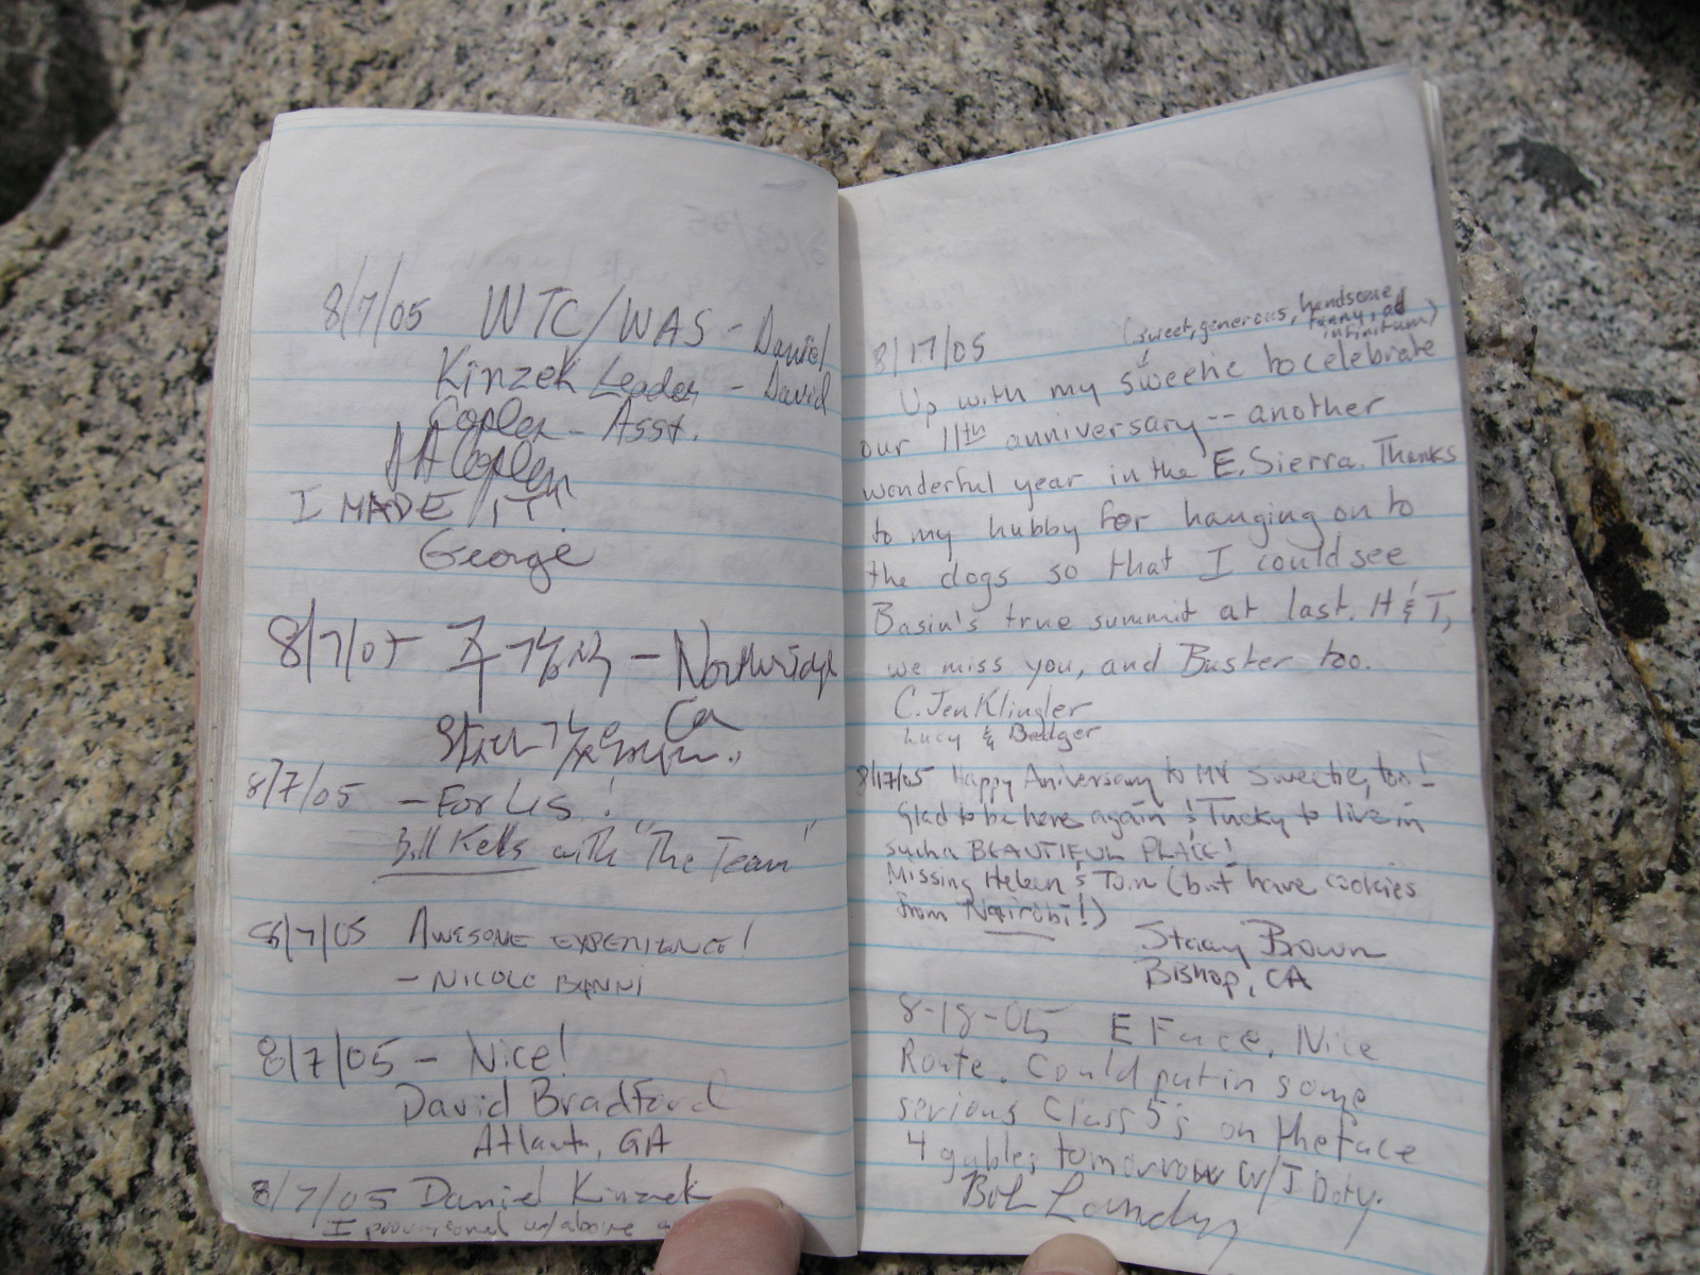 8/7/05 WTC/WAS - Daniel
Kinzek Leader - David
Copler - Asst.
I MADE IT!
George
8/7/05 - Northridge
Ca
8/7/05 - For Us!
Bill Kells with "The Team"
8/7/05 AWESOME EXPERIENCE!
- NICOLE
8/7/05 - Nice!
David Bradford
Atlanta, GA
8/7/05 Daniel Kinzek
I provisional
8/17/05
(sweet, generous, handsome,
funny, ad
infinitum)
Up with my sweetie to celebrate
our 11th anniversary -- another
wonderful year in the E. Sierra. Thanks
to my hubby for hanging on to
the dogs so that I could see
Basin's true summit at last. H & T,
we miss you, and Buster too.
C. Jen Klingler
Lucy & Badger
8/17/05 Happy Aniversary to MY Sweetie, too!
Glad to be here again & Lucky to live in
such a BEAUTIFUL PLACE!
Missing Helen & Tom (but have cookies
from Nairobi!)
Stacy Brown
Bishop, CA
8-18-05 E Face, Nice
Route. Could put in some
serious Class 5's on the face
4 gables tomorrow w/ J Doty.
Bob